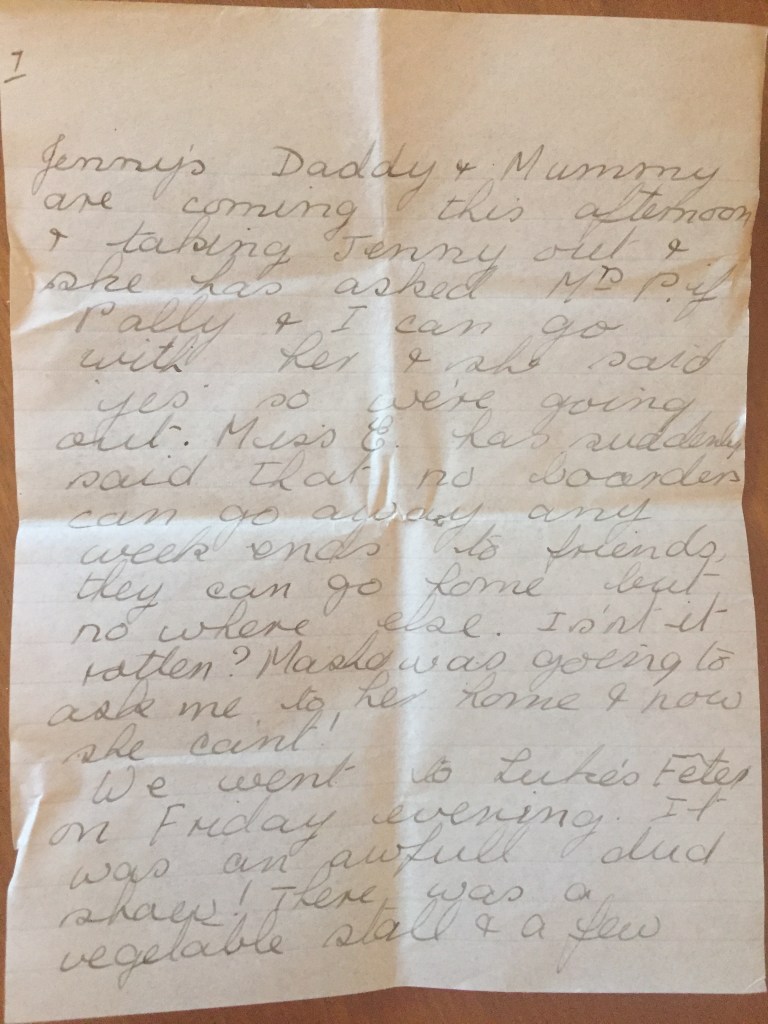 7
Jenny's Daddy & Mummy
are coming this afternoon
& taking Jenny out &
she has asked Mrs P. if
Pally & I can go
with her & she said
yes so we're going
out. Miss E. has suddenly
said that no boarders
can go away any
week ends to friends,
they can go home but
no where else. Is'nt it
rotten? was going to
ask me to her home & now
she can't!
We went to Luke's Fete
on Friday evening. It
was an awfull dud
! There was a
vegetable stall & a few